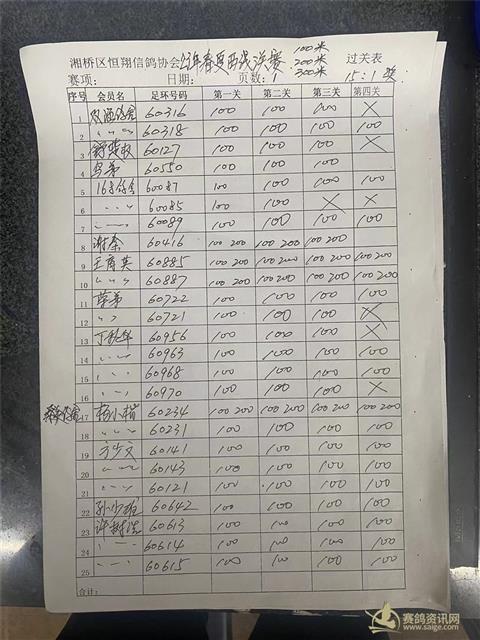 湘桥区恒翔信鸽协会 23年春夏两线决赛 100米 200米 300米 过关表
赛项: 日期: 页数: 1 15:1奖
序号 会员名 足环号码 第一关 第二关 第三关 第四关
1 60316 100 100 100 X
2 〃 〃 〃 60318 100 100 100 100
3 60127 100 100 100 X
4 60550 100 100 100
5 60087 100 100 100 100
6 〃 〃 60085 100 100 X X
7 〃 〃 60089 100 100 100 100
8 谢泰 60416 100 200 100 200 100 200
9 王育英 60885 100 200 100 200 100 200 100 200
10 〃 〃 〃 60887 100 200 100 200 100 200 100 200
11 60722 100 100 100 100
12 〃 〃 60721 100 100 100 X
13 60956 100 100 100 X
14 〃 〃 60963 100 100 100 100
15 〃 〃 60968 100 100 100 100
16 〃 〃 60970 100 100 100 X
17 杨小楷 60234 100 200 100 200 100 200 100 200
18 〃 〃 60231 100 100 100 100
19 60141 100 100 100 100
20 〃 〃 60143 100 100 100 100
21 〃 〃 60121 100 100 100 100
22 60642 100 100 100 100
23 60613 100 100 100 100
24 〃 〃 60614 100 100 100 100
25 〃 〃 60615 100 100 100 100
合计:
赛鸽资讯网
www.saige.com